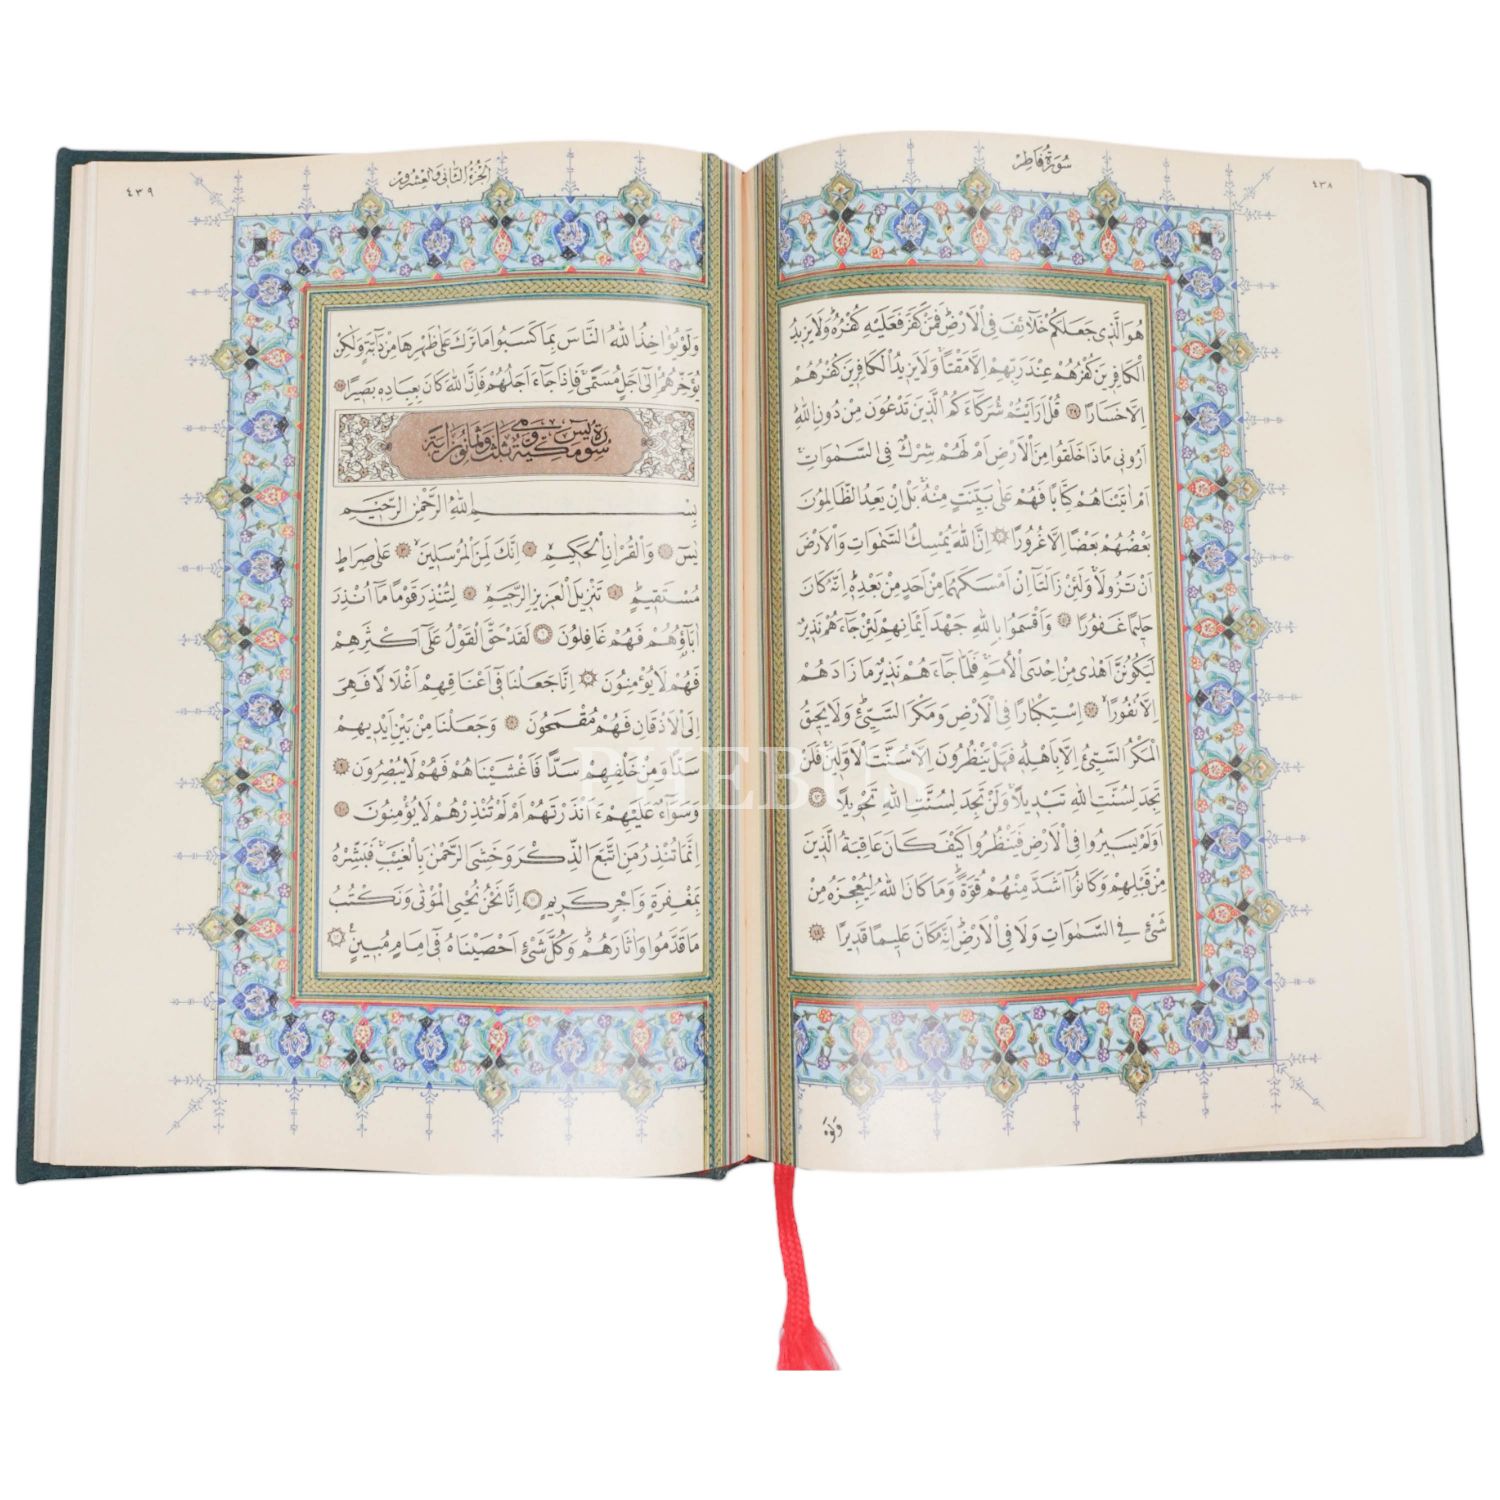 ٤٣٨
سُورَةُ فَاطِرْ
هُوَ الَّذ۪ي جَعَلَكُمْ خَلَٓائِفَ فِي الْاَرْضِۜ فَمَنْ كَفَرَ فَعَلَيْهِ كُفْرُهُۜ وَلَا يَز۪يدُ
الْكَافِر۪ينَ كُفْرُهُمْ عِنْدَ رَبِّهِمْ اِلَّا مَقْتًاۚ وَلَا يَز۪يدُ الْكَافِر۪ينَ كُفْرُهُمْ
اِلَّا خَسَارًا ٣٩ قُلْ اَرَاَيْتُمْ شُرَكَٓاءَكُمُ الَّذ۪ينَ تَدْعُونَ مِنْ دُونِ اللّٰهِۜ
اَرُون۪ي مَاذَا خَلَقُوا مِنَ الْاَرْضِ اَمْ لَهُمْ شِرْكٌ فِي السَّمٰوَاتِۚ
اَمْ اٰتَيْنَاهُمْ كِتَابًا فَهُمْ عَلٰى بَيِّنَتٍ مِنْهُۚ بَلْ اِنْ يَعِدُ الظَّالِمُونَ
بَعْضُهُمْ بَعْضًا اِلَّا غُرُورًا ٤٠ اِنَّ اللّٰهَ يُمْسِكُ السَّمٰوَاتِ وَالْاَرْضَ
اَنْ تَزُولَاۚ وَلَئِنْ زَالَتَٓا اِنْ اَمْسَكَهُمَا مِنْ اَحَدٍ مِنْ بَعْدِه۪ۜ اِنَّهُ كَانَ
حَل۪يمًا غَفُورًا ٤١ وَاَقْسَمُوا بِاللّٰهِ جَهْدَ اَيْمَانِهِمْ لَئِنْ جَٓاءَهُمْ نَذ۪يرٌ
لَيَكُونُنَّ اَهْدٰى مِنْ اِحْدَى الْاُمَمِۚ فَلَمَّا جَٓاءَهُمْ نَذ۪يرٌ مَا زَادَهُمْ
اِلَّا نُفُورًا ٤٢ اِسْتِكْبَارًا فِي الْاَرْضِ وَمَكْرَ السَّيِّئِۜ وَلَا يَح۪يقُ
الْمَكْرُ السَّيِّئُ اِلَّا بِاَهْلِه۪ۜ فَهَلْ يَنْظُرُونَ اِلَّا سُنَّتَ الْاَوَّل۪ينَۚ فَلَنْ
تَجِدَ لِسُنَّتِ اللّٰهِ تَبْد۪يلًاۚ وَلَنْ تَجِدَ لِسُنَّتِ اللّٰهِ تَحْو۪يلًا ٤٣
اَوَلَمْ يَس۪يرُوا فِي الْاَرْضِ فَيَنْظُرُوا كَيْفَ كَانَ عَاقِبَةُ الَّذ۪ينَ
مِنْ قَبْلِهِمْ وَكَانُٓوا اَشَدَّ مِنْهُمْ قُوَّةًۜ وَمَا كَانَ اللّٰهُ لِيُعْجِزَهُ مِنْ
شَيْءٍ فِي السَّمٰوَاتِ وَلَا فِي الْاَرْضِۜ اِنَّهُ كَانَ عَل۪يمًا قَد۪يرًا ٤٤
وَلَوْ
اَلْجُزْءُ الثَّانِي وَالْعِشْرُونَ
٤٣٩
وَلَوْ يُؤَاخِذُ اللّٰهُ النَّاسَ بِمَا كَسَبُوا مَا تَرَكَ عَلٰى ظَهْرِهَا مِنْ دَٓابَّةٍ وَلٰكِنْ
يُؤَخِّرُهُمْ اِلٰٓى اَجَلٍ مُسَمًّىۚ فَاِذَا جَٓاءَ اَجَلُهُمْ فَاِنَّ اللّٰهَ كَانَ بِعِبَادِه۪ بَص۪يرًا ٤٥
سُورَةُ يٰسٓ مَكِّيَّةٌ وَهِيَ ثَلَاثٌ وَثَمَانُونَ اٰيَةً
بِسْمِ اللّٰهِ الرَّحْمٰنِ الرَّح۪يمِ
يٰسٓ ١ وَالْقُرْاٰنِ الْحَك۪يمِ ٢ اِنَّكَ لَمِنَ الْمُرْسَل۪ينَ ٣ عَلٰى صِرَاطٍ
مُسْتَق۪يمٍ ٤ تَنْز۪يلَ الْعَز۪يزِ الرَّح۪يمِ ٥ لِتُنْذِرَ قَوْمًا مَٓا اُنْذِرَ
اٰبَٓاؤُهُمْ فَهُمْ غَافِلُونَ ٦ لَقَدْ حَقَّ الْقَوْلُ عَلٰٓى اَكْثَرِهِمْ
فَهُمْ لَا يُؤْمِنُونَ ٧ اِنَّا جَعَلْنَا ف۪ٓي اَعْنَاقِهِمْ اَغْلَالًا فَهِيَ
اِلَى الْاَذْقَانِ فَهُمْ مُقْمَحُونَ ٨ وَجَعَلْنَا مِنْ بَيْنِ اَيْد۪يهِمْ
سَدًّا وَمِنْ خَلْفِهِمْ سَدًّا فَاَغْشَيْنَاهُمْ فَهُمْ لَا يُبْصِرُونَ ٩
وَسَوَٓاءٌ عَلَيْهِمْ ءَاَنْذَرْتَهُمْ اَمْ لَمْ تُنْذِرْهُمْ لَا يُؤْمِنُونَ ١٠
اِنَّمَا تُنْذِرُ مَنِ اتَّبَعَ الذِّكْرَ وَخَشِيَ الرَّحْمٰنَ بِالْغَيْبِۚ فَبَشِّرْهُ
بِمَغْفِرَةٍ وَاَجْرٍ كَر۪يمٍ ١١ اِنَّا نَحْنُ نُحْيِ الْمَوْتٰى وَنَكْتُبُ
مَا قَدَّمُوا وَاٰثَارَهُمْۜ وَكُلَّ شَيْءٍ اَحْصَيْنَاهُ ف۪ٓي اِمَامٍ مُب۪ينٍ۟ ١٢
PHEBUS